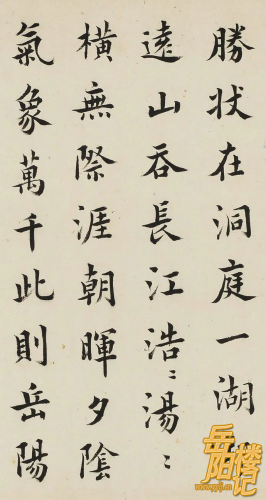 勝状在洞庭一湖
遠山吞長江浩〻湯〻
橫無際涯朝暉夕陰
氣象萬千此則岳陽
岳阳楼记